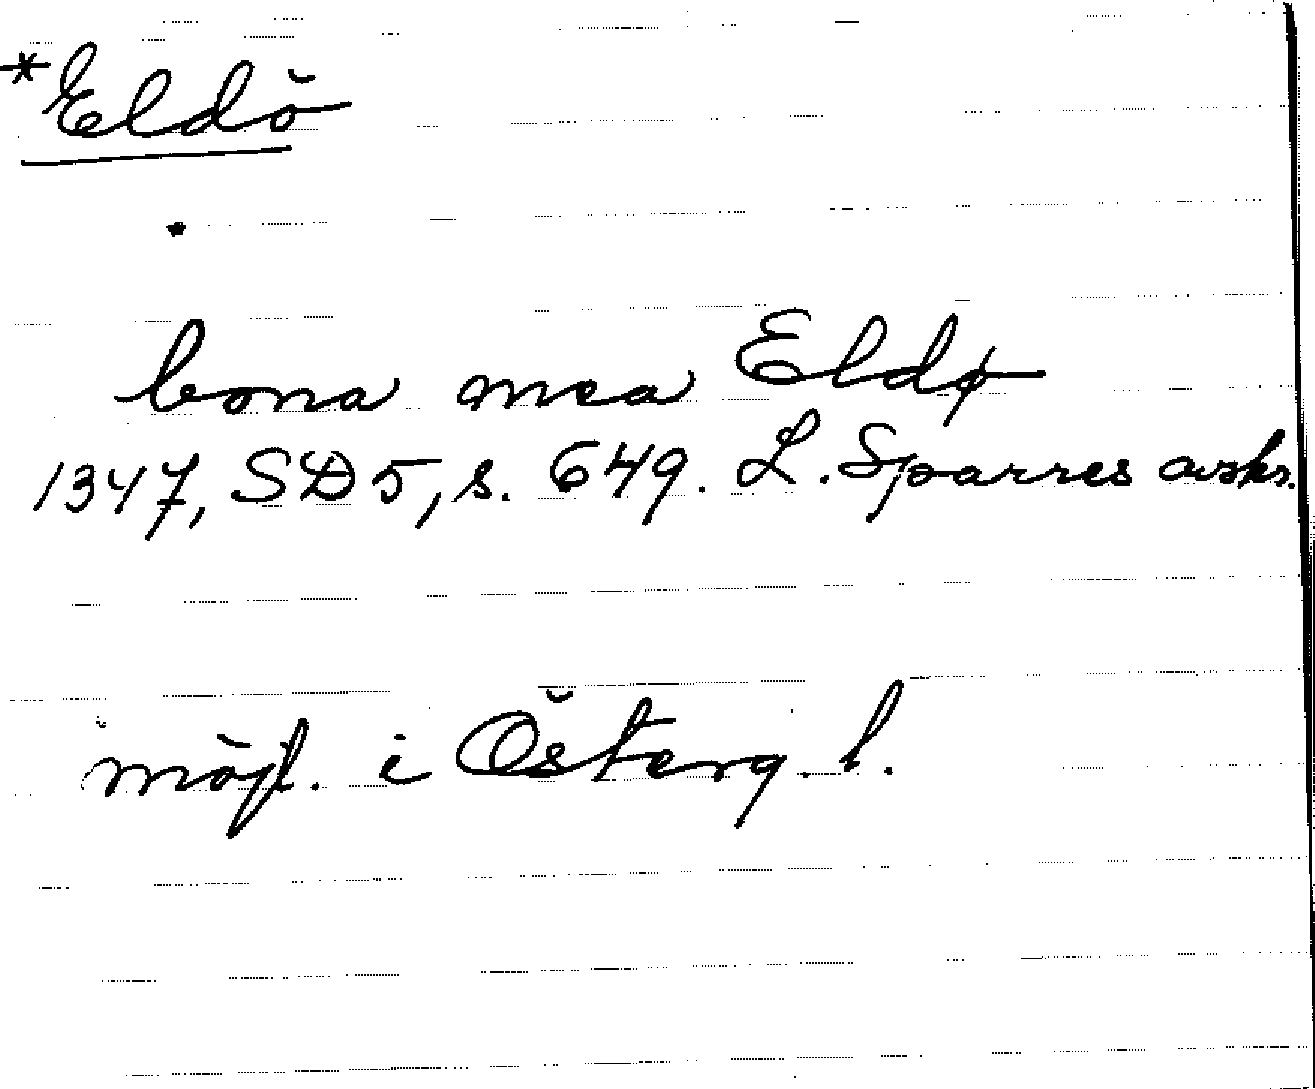 *Eldö
bona mea Eldø
1347, SD 5, s. 649. L. Sparres avskr.
möjl. i Österg. l.